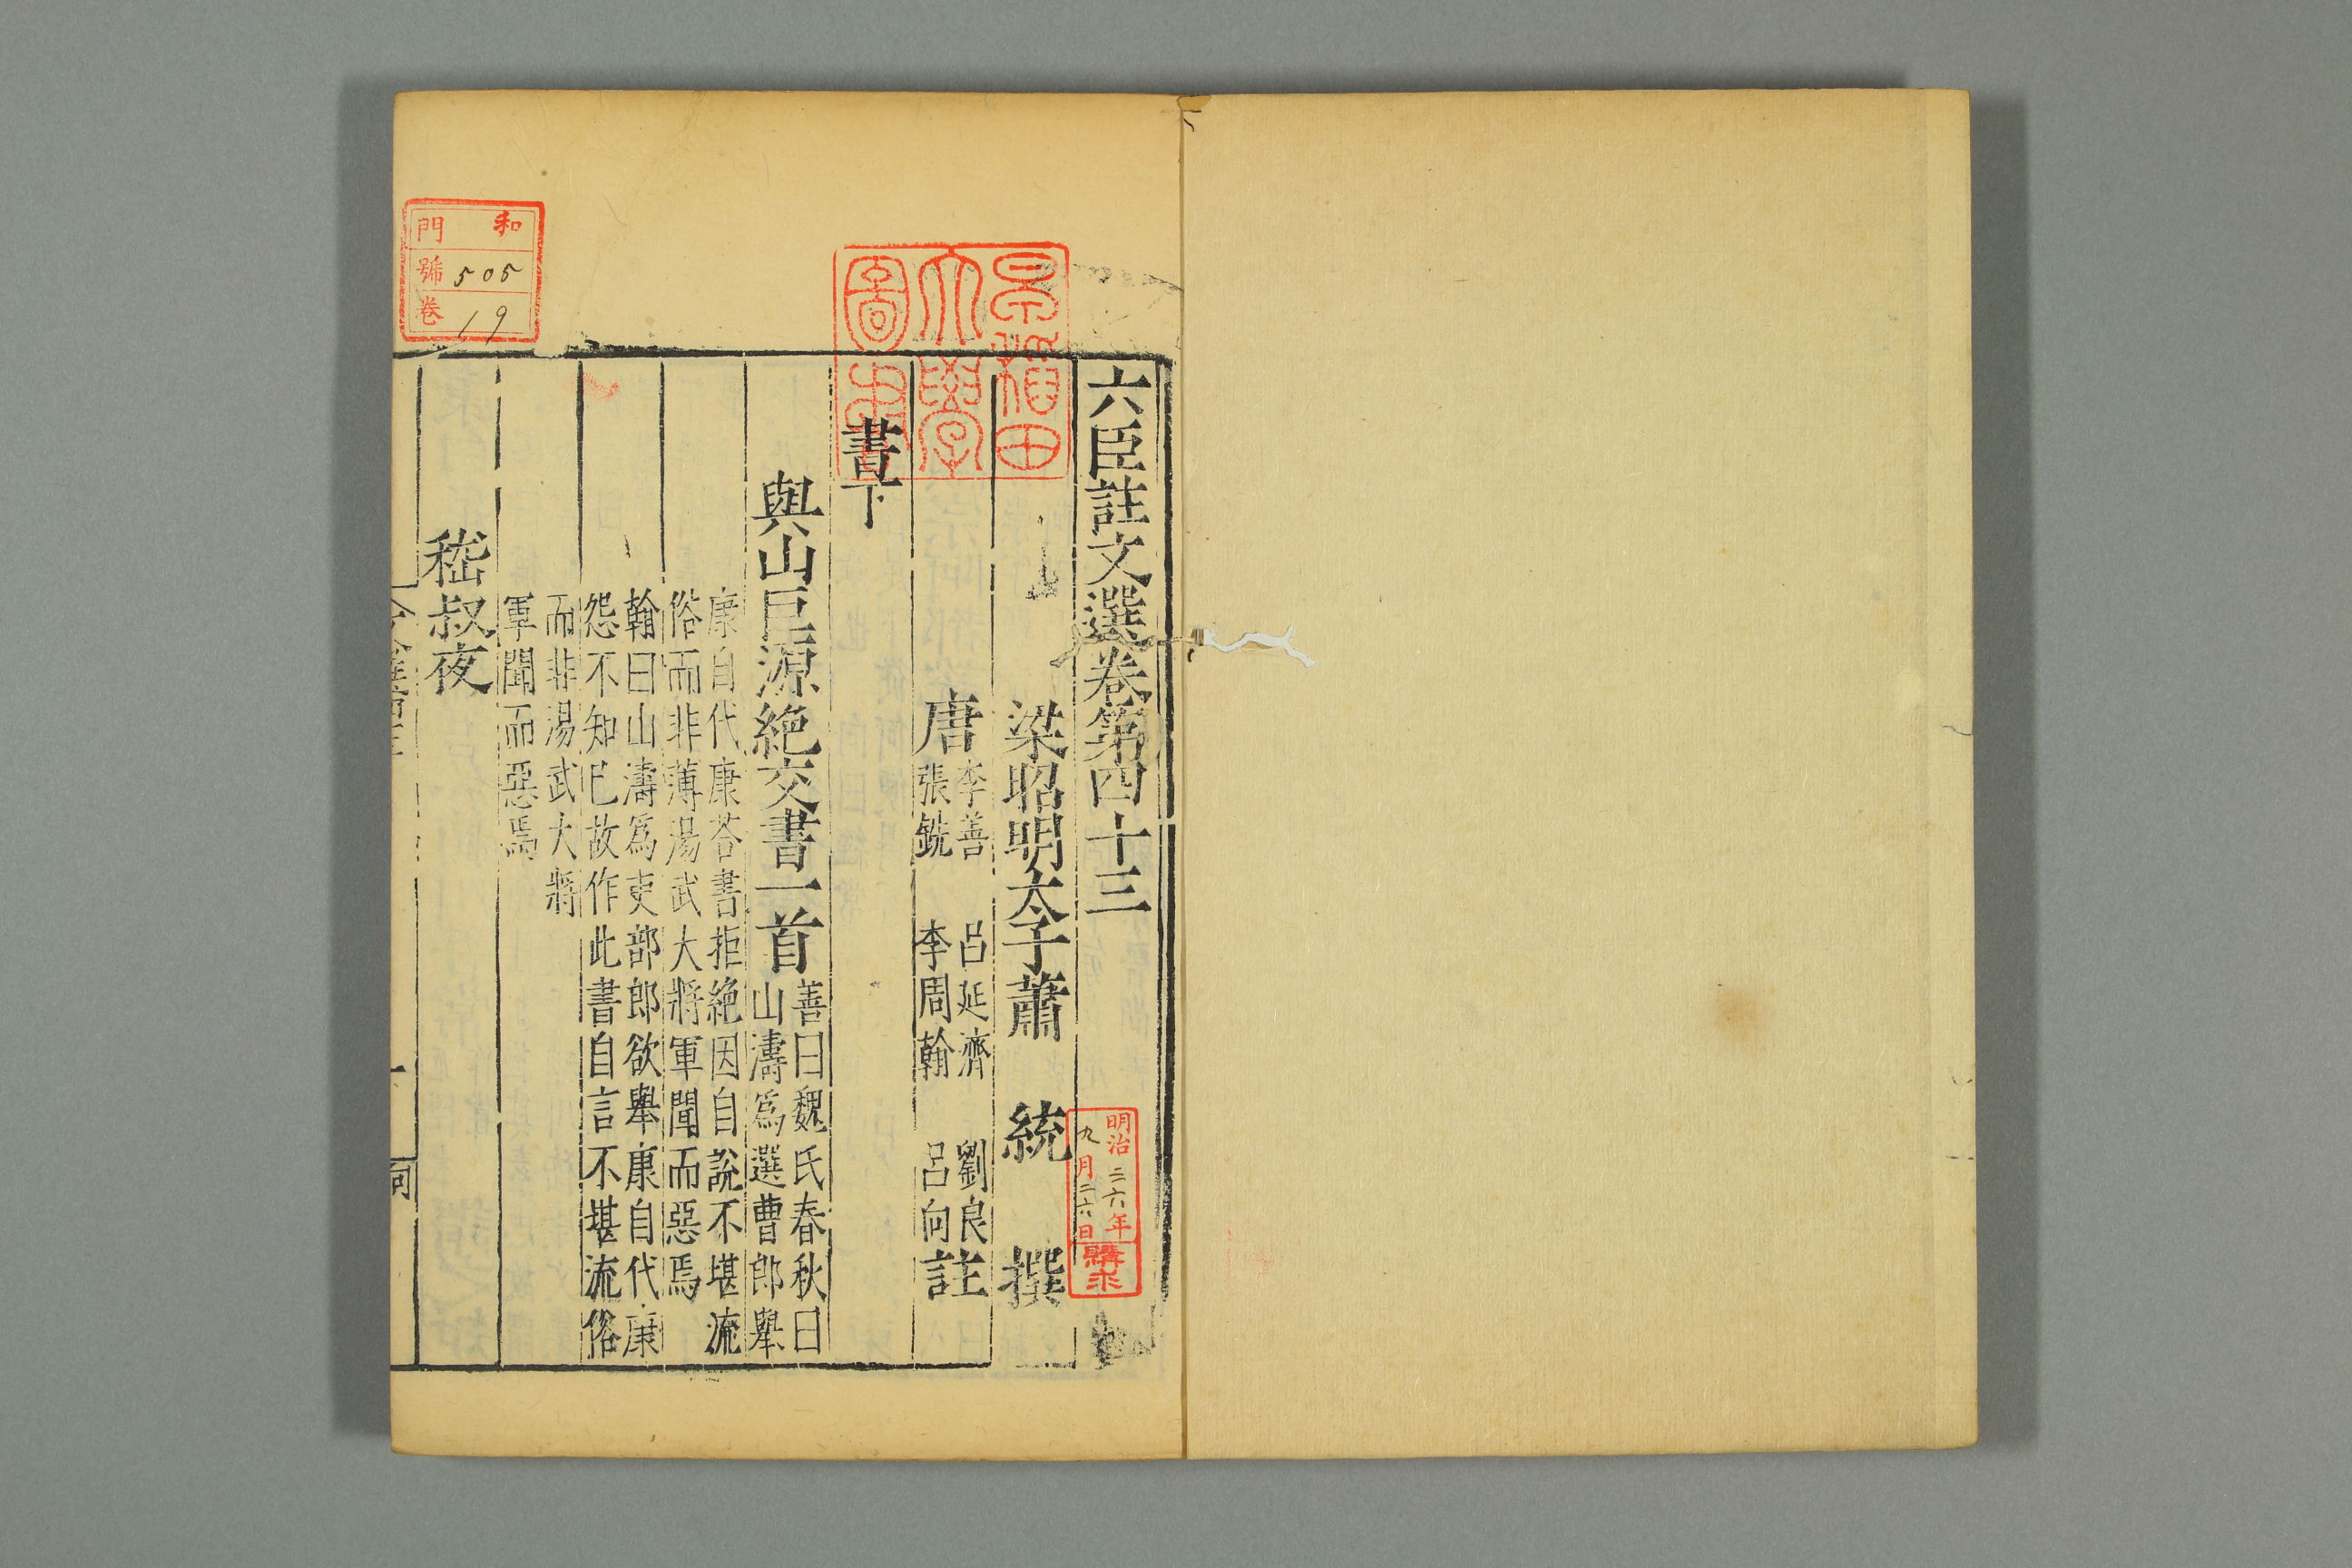 六臣註文選卷第四十三
梁昭明太子蕭統撰
唐李善呂延濟劉良
張銑李周翰呂向註
書下
與山巨源絕交書一首善曰魏氏春秋曰
山濤為選曹郎舉
康自代康荅書拒絕因自說不堪流
俗而非薄湯武大將軍聞而惡焉
翰曰山濤為吏部郎欲舉康自代康
怨不知已故作此書自言不堪流俗
而非湯武大將
軍聞而惡焉
嵇叔夜
早稻田
大學
圖書
明治二六年
九月二六日
購求
和門
號505
卷19